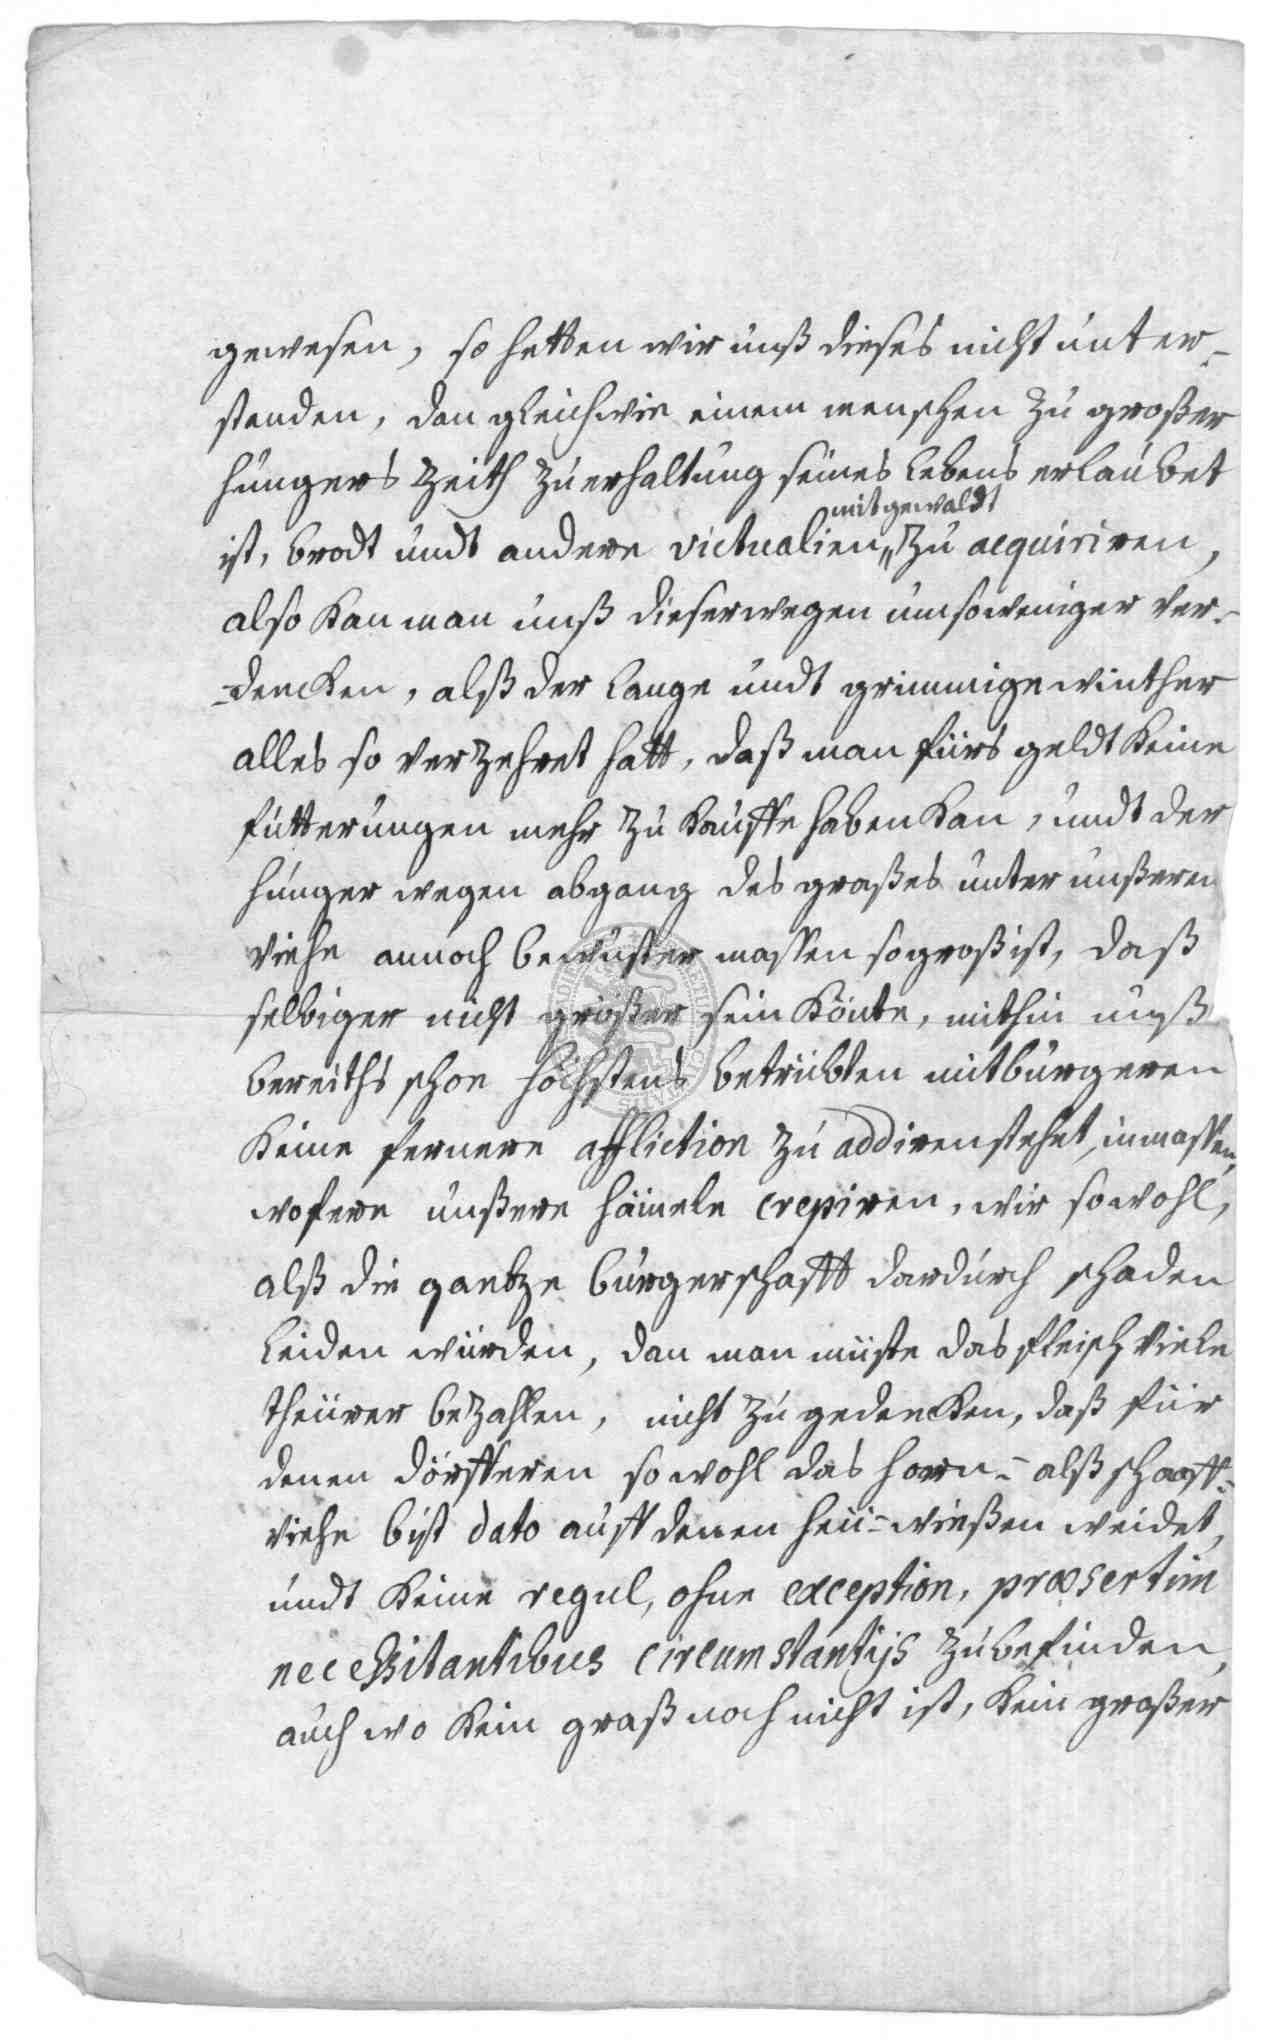 gewesen, so hetten wir unß dieses nicht unter-
standen, dan gleichwie einem menschen zu großer
hungers Zeith zu erhaltung seines Lebens erlaubet
mit gewaldt
ist, brodt undt andere victualien„ zu acquiriren,
also Kan man unß dieserwegen umsoweniger ver-
-dencken, alß der lange undt grimmige winther
alles so verzehret hatt, daß man fürs geldt Keine
futterungen mehr zu Kauffe haben Kan, undt der
hunger wegen abgang des graßes unter unßerem
Viehe annoch bewuster massen so groß ist, daß
selbiger nicht größer sein Könte, mithin unß
bereiths schon höchstens betrübten mitbürgeren
Keine fernere affliction zu addiren stehet, inmassen,
wofern unßere hämele crepiren, wir sowohl,
alß die gantze burgerschafft dardurch schaden
Leiden würden, dan man müste das fleisch viele
theürer bezahlen, nicht zu gedencken, daß für
denen dörfferen so wohl das horn- alß schaaff-
viehe bist dato auff denen heü-wießen weidet,
undt Keine regul, ohne exception, præsertim
necessitantibus circumstantijs zu befinden,
auch wo Kein graß noch nicht ist, Kein großer